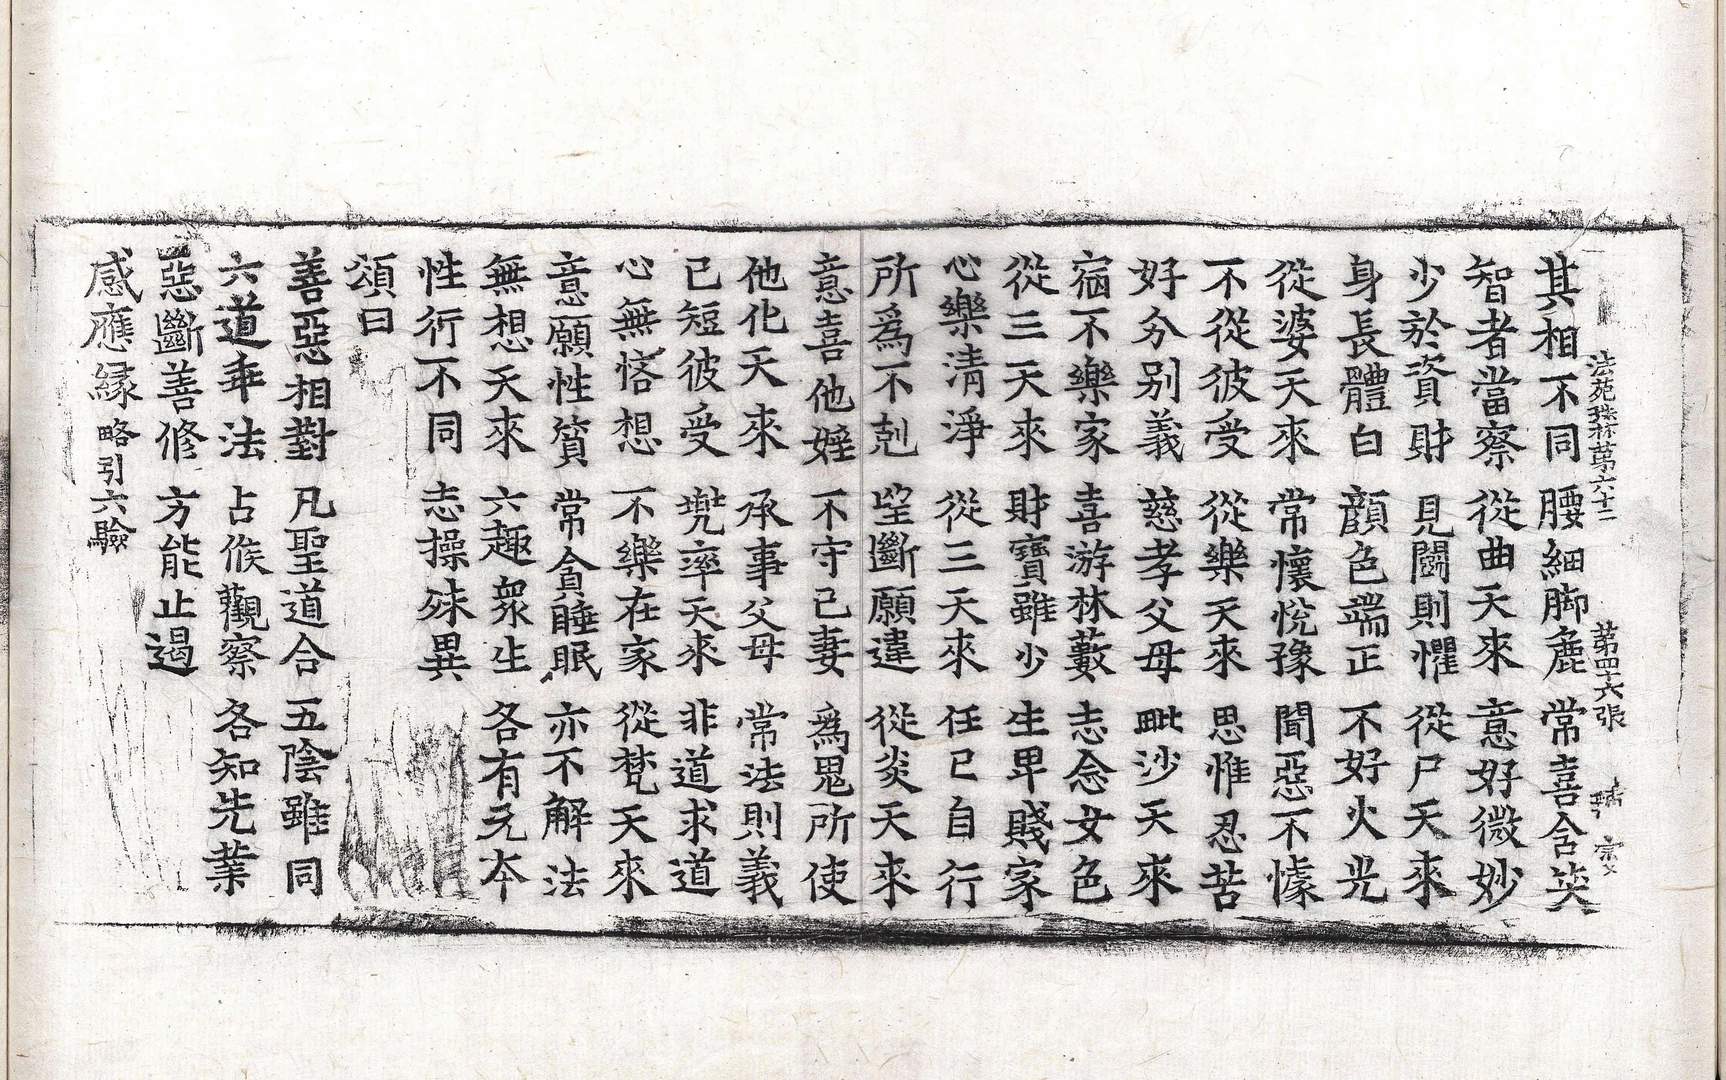 法苑珠林第六十二 第四十六張 宗
其相不同 腰細脚麁 常喜含笑
智者當察 從曲天來 意好微妙
少於資財 見鬪則懼 從尸天來
身長體白 顔色端正 不好火光
從婆天來 常懷悅豫 聞惡不懅
不從彼受 從樂天來 思惟忍苦
好分別義 慈孝父母 毗沙天來
宿不樂家 喜游林藪 志念女色
從三天來 財寶雖少 生卑賤家
心樂清淨 從三天來 任己自行
所爲不剋 望斷願違 從炎天來
意喜他婬 不守己妻 爲鬼所使
他化天來 承事父母 常法則義
己短彼受 兜率天來 非道求道
心無悋想 不樂在家 從梵天來
意願性貿 常貪睡眠 亦不解法
無想天來 六趣衆生 各有元本
性行不同 志操殊異
頌曰
善惡相對 凡聖道合 五陰雖同
六道乖法 占候觀察 各知先業
惡斷善修 方能止遏
感應緣略引六驗